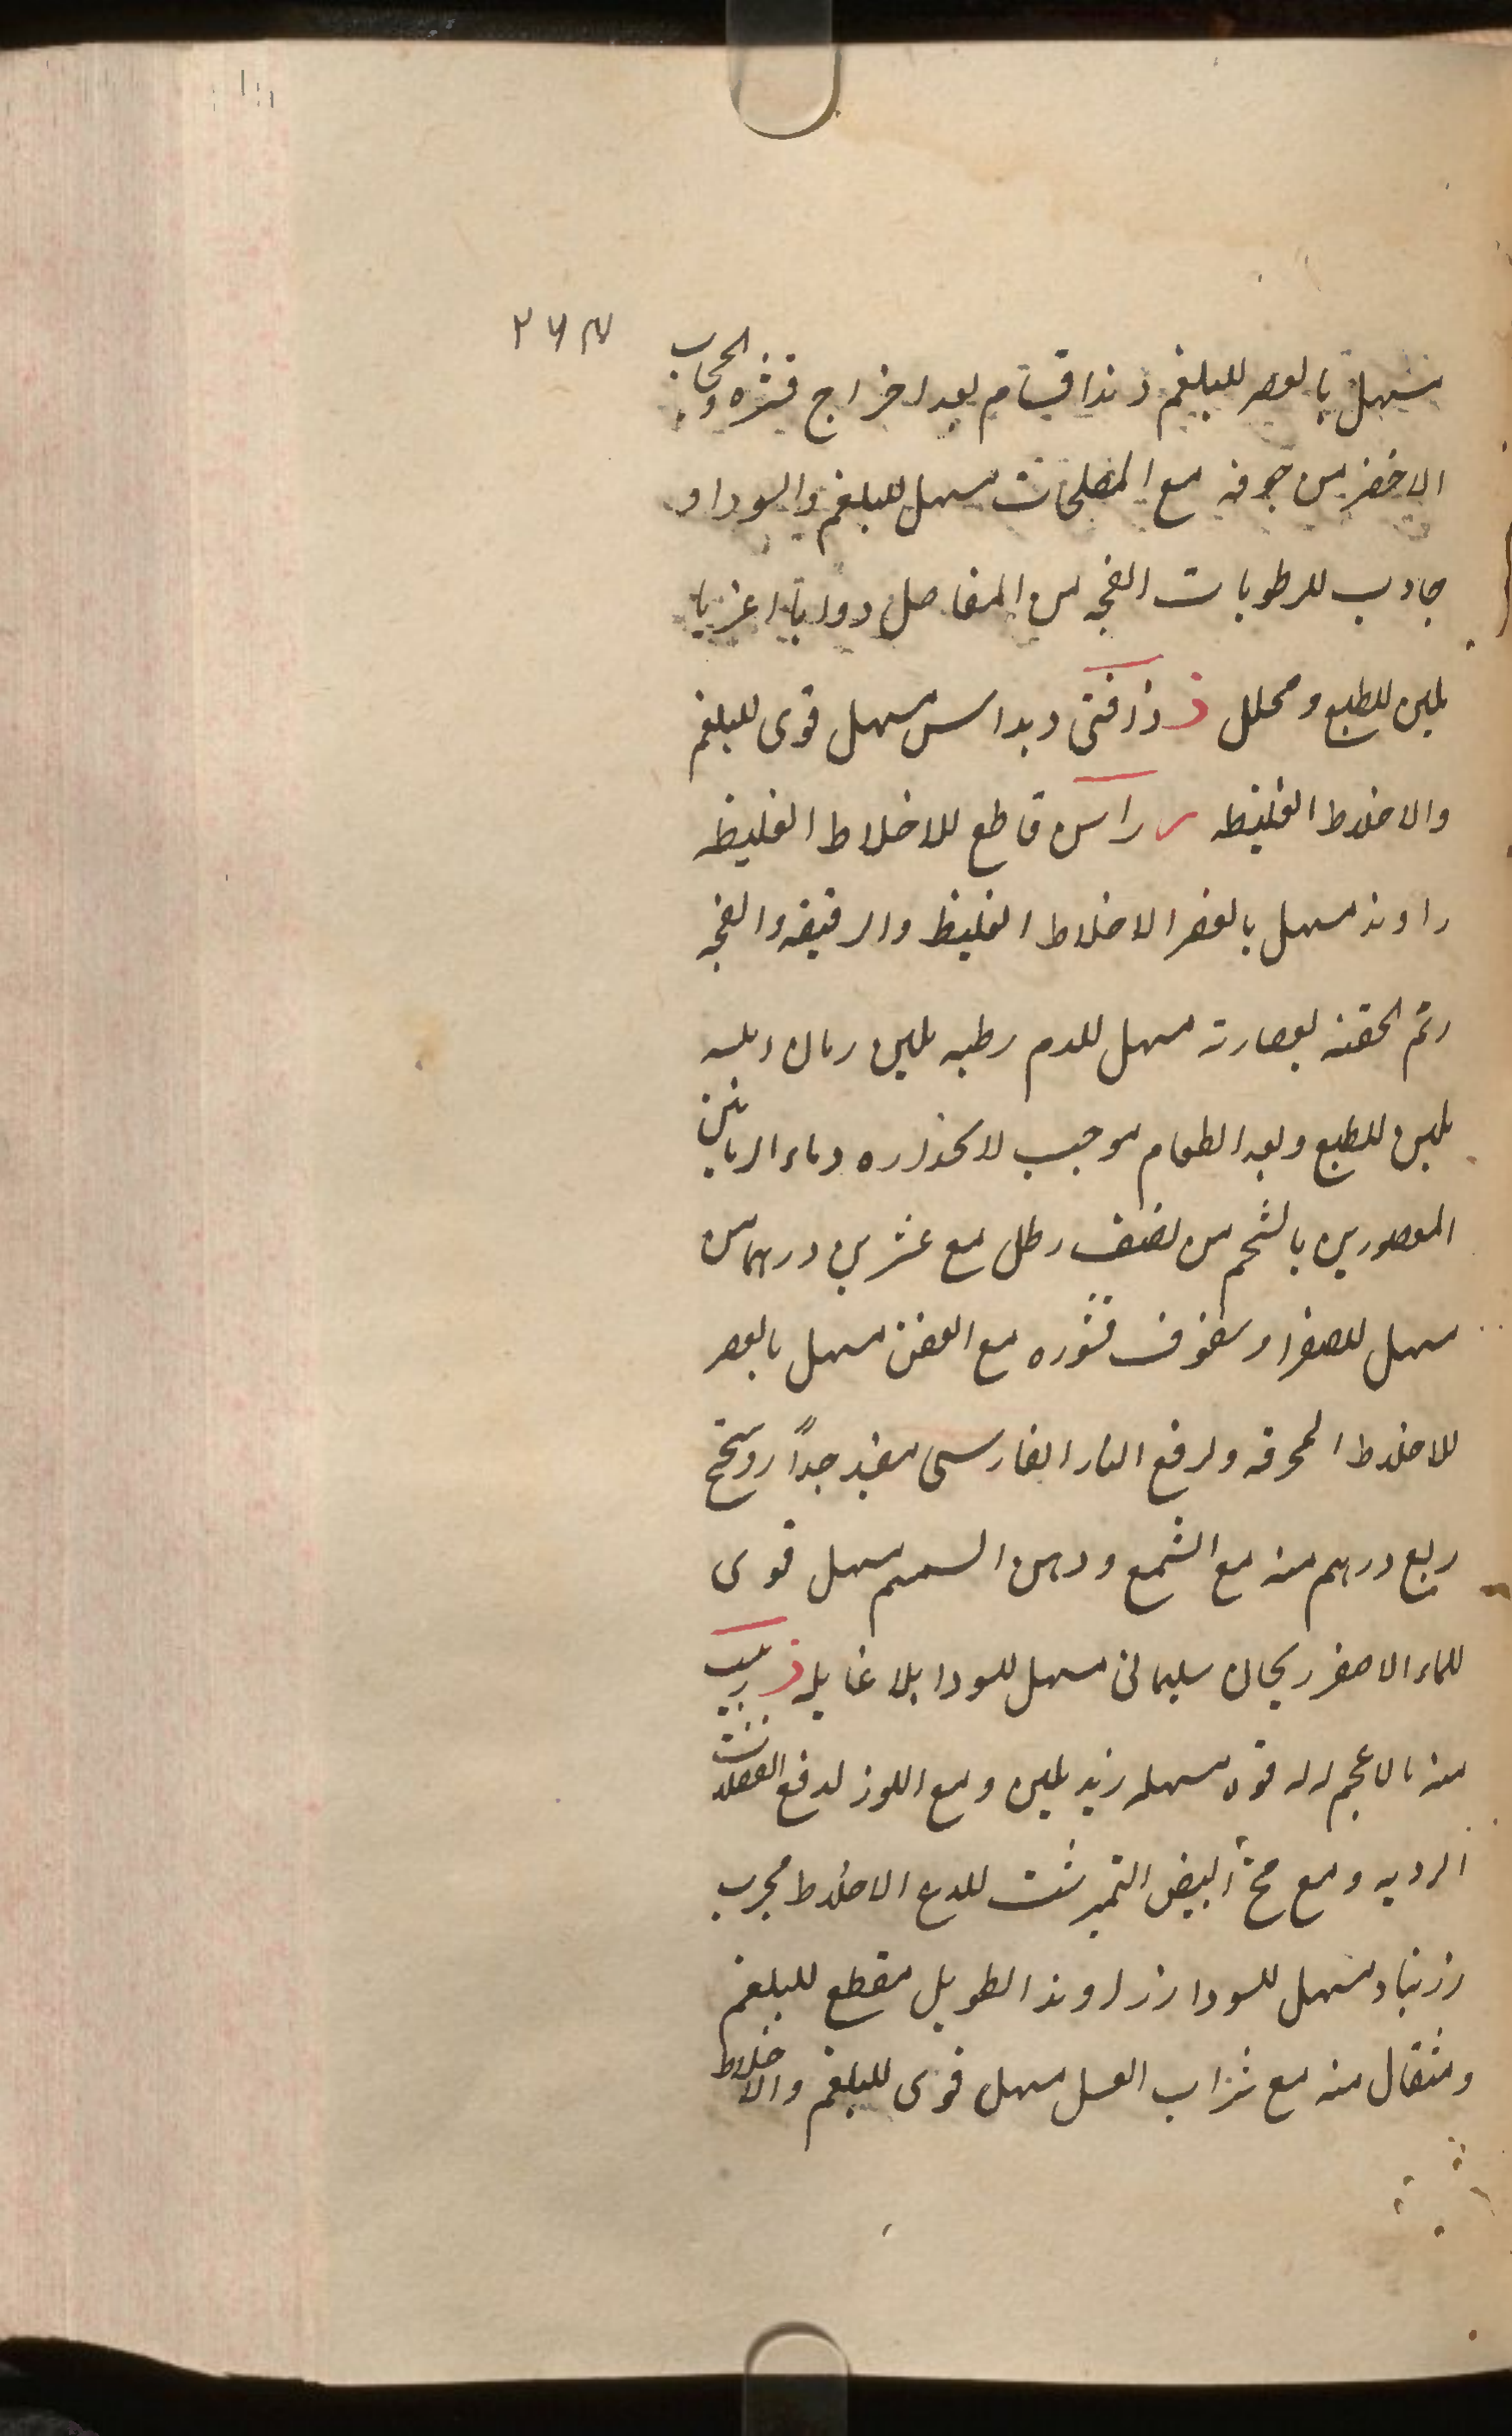 ۲۶۴
مسهل بالعصر للبلغم دند اقسام بعد اخراج قشره والحجاب
الاخضر من جوفه مع المصلحات مسهل للبلغم والسودا و
جاذب للرطوبات الفجه من المفاصل
ملین للطبع ومحلل ذ مسهل قوی للبلغم
والاخلاط الغلیظه ر راسن قاطع للاخلاط الغلیظه
راوند مسهل بالعصر الاخلاط الغلیظ والرقیقه والفجه
رتم الحقنه بعصارته مسهل للدم رطبه ملین رمان
ملین للطبع وبعد الطعام موجب لانحداره وماء الرمانین
المعصورین بالشحم من نصف رطل مع عشرین درهما من
مسهل للصفرا وسفوف قشوره مع العفص مسهل بالعصر
للاخلاط المحرقه ولرفع النار الفارسی مفید جداً روسختج
ربع درهم منه مع الشمع ودهن السمسم مسهل قوی
للماء الاصفر ریحان سلیمانی مسهل للسودا بلا غایله ز زبیب
منه بالاعجم له قوه مسهله زبد ملین ومع اللوز لدفع الفضلات
الردیه ومع مح البیض النمیرشت للذع الاخلاط مجرب
زرنباد مسهل للسودا زراوند الطویل مقطع للبلغم
ومثقال منه مع شراب العسل مسهل قوی للبلغم والاخلاط